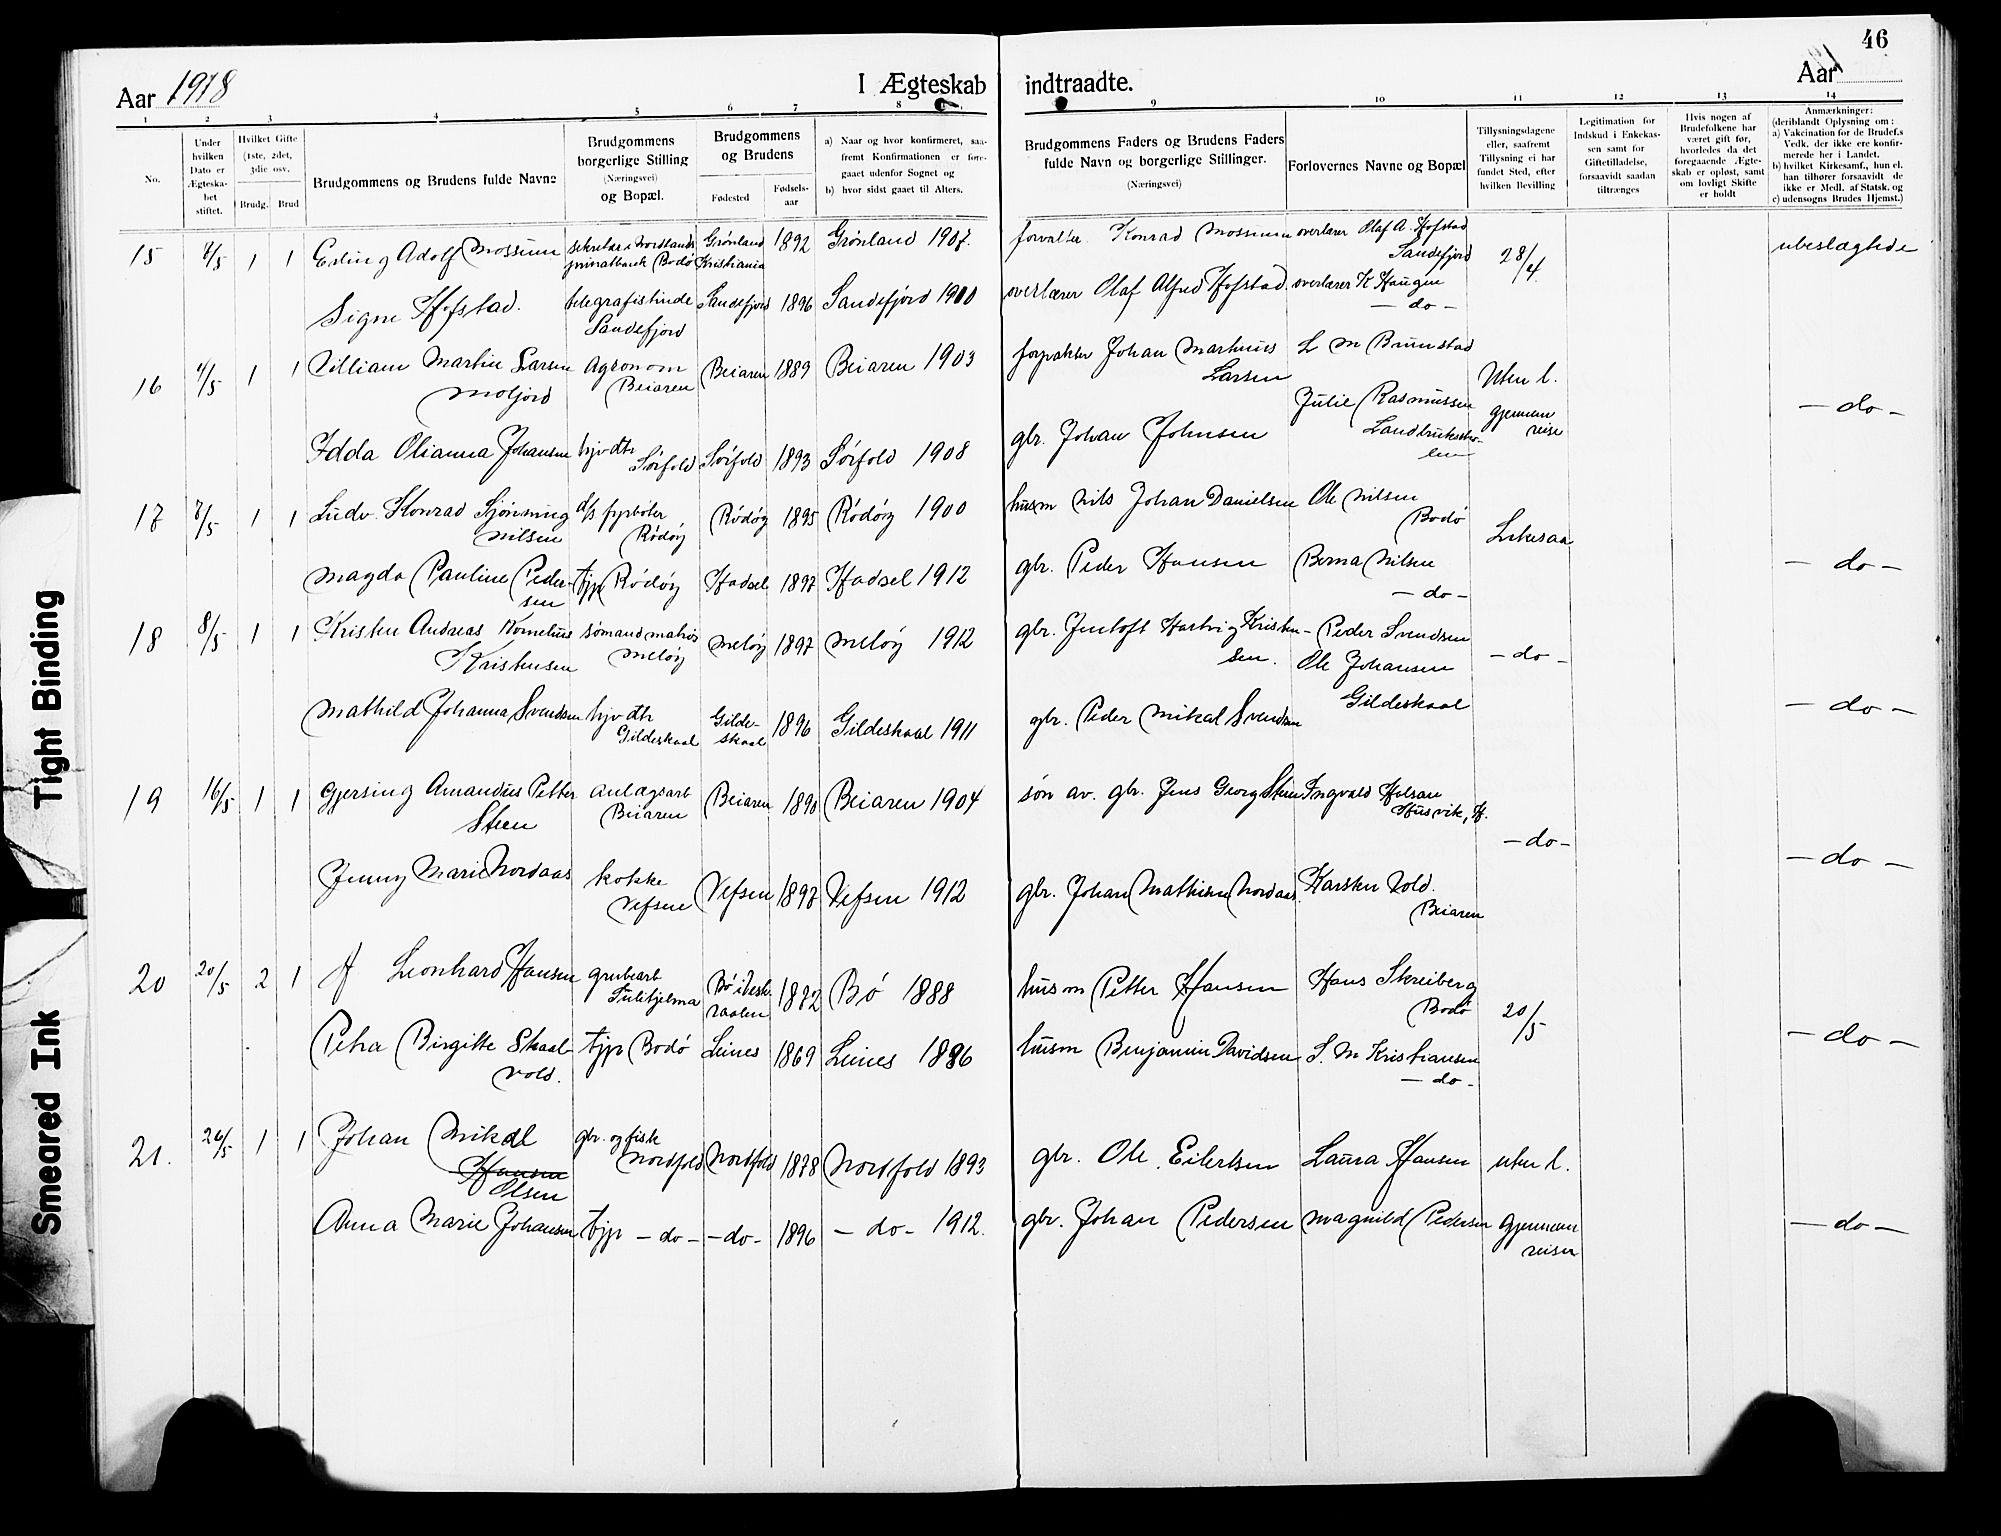 46
Aar 1918
I Ægteskab indtraadte.
Aar
1 2 3 4 5 6 7 8 9 10 11 12 13 14
No.
Under hvilken Dato er Ægteskabet stiftet.
Hvilket Gifte (1ste, 2det, 3die osv.
Brudg. Brud
Brudgommens og Brudens fulde Navne
Brudgommens borgerlige Stilling (Næringsvei) og Bopæl.
Brudgommens og Brudens
Fødested
Fødsels-aar
a) Naar og hvor konfirmeret, saafremt Konfirmationen er foregaaet udenfor Sognet og
b) hvor sidst gaaet til Alters.
Brudgommens Faders og Brudens Faders fulde Navn og borgerlige Stillinger.
(Næringsvei)
Forlovernes Navne og Bopæl
Tillysningsdagene eller, saafremt Tillysning ei har fundet Sted, efter hvilken Bevilling
Legitimation for Indskud i Enkekassen samt for Giftetilladelse, forsaavidt saadan tiltrænges
Hvis nogen af Brudefolkene har været gift før, hvorledes da det foregaaende Ægteskab er opløst, samt om lovligt Skifte er holdt
Anmærkninger: (deriblandt Oplysning om:
a) Vakcination for de Brudef.s Vedk. der ikke ere konfirmerede her i Landet.
b) hvilket Kirkesamf., hun el. han tilhører forsaavidt de ikke er Medl. af Statsk. og
c) udensogns Brudes Hjemst.)
15 4/5 1 1 Erling Adolf Mossum sekretær i Nordlands privatbank Bodø Grønland Kristiania 1892 Grønland 1907. forvalter Konrad Mossum overlærer Olaf A. Hofstad Sandefjord 28/4. ubeslægtede
Signe Hofstad. telegrafistinde Sandefjord Sandefjord 1896 Sandefjord 1910 overlærer Olaf Alfred Hofstad. overlærer K Haugen - do -
16 4/5 1 1 Villiam Martin Larsen Moljord Agronom Beiaren Beiaren 1889 Beiaren 1903 forpakter Johan Markuus Larsen L M Brunstad Uten l. gjennem reise - do -
Idda Olianna Johansen hjv dtr Sørfold Sørfold 1893 Sørfold 1908 gbr. Johan Johnsen Julie Rasmussen Landbruksskolen
17 8/5 1 1 Ludv. Konrad Sjønning Nilsen d/s fyrbøter Rødøy Rødøy 1895 Rødøy 1900 husm Nils Johan Danielsen Ole Nilsen Bodø Likesaa
Magda Pauline Pedersen tjp Rødøy Hadsel 1897 Hadsel 1912 gbr. Peder Hansen Berna Nilsen - do - - do -
18 8/5 1 1 Kristen Andreas Kornelius Kristensen sømand matros Meløy Meløy 1897 Meløy 1912 gbr. Jentoft Hartvig Kristensen. Peder Svendsen - do -
Ole Johansen Gildeskaal
Mathild Johanna Svendsen hjv dtr Gildeskaal Gildeskaal 1896 Gildeskaal 1911 gbr. Peder Mikal Svendsen - do -
19 16/5 1 1 Gjersing Amandus Petter Steen anlægsarb Beiaren Beiaren 1890 Beiaren 1904 søn av. gbr. Jens Georg Steen Ingvald Husvik, H. - do -
Jenny Marie Nordaas kokke Vefsen Vefsen 1897 Vefsen 1912 gbr. Johan Mathisen Nordaas. Karsten Vold. Beiaren - do -
20 20/5 2 1 Leonhard Hansen grubearb Sulitjelma Bø i Vesteraalen 1872 Bø 1888 husm Petter Hansen Hans Skreiberg Bodø 20/5
Petra Birgitte Skaalvold. tjp Bodø Leines 1869 Leines 1886 husm Benjamin Davidsen S. M Kristiansen - do - - do -
21. 26/5 1 1 Johan Mikal Hansen Olsen gbr. og fisk Nordfold Nordfold 1878 Nordfold 1893 gbr. Ole Eilertsen Laura Hansen uten l.
Anna Marie Johansen tjp - do - - do - 1896 - do - 1912. gbr. Johan Pedersen Magnild Pedersen gjennem reiser - do -
Tight Binding
Smeared Ink